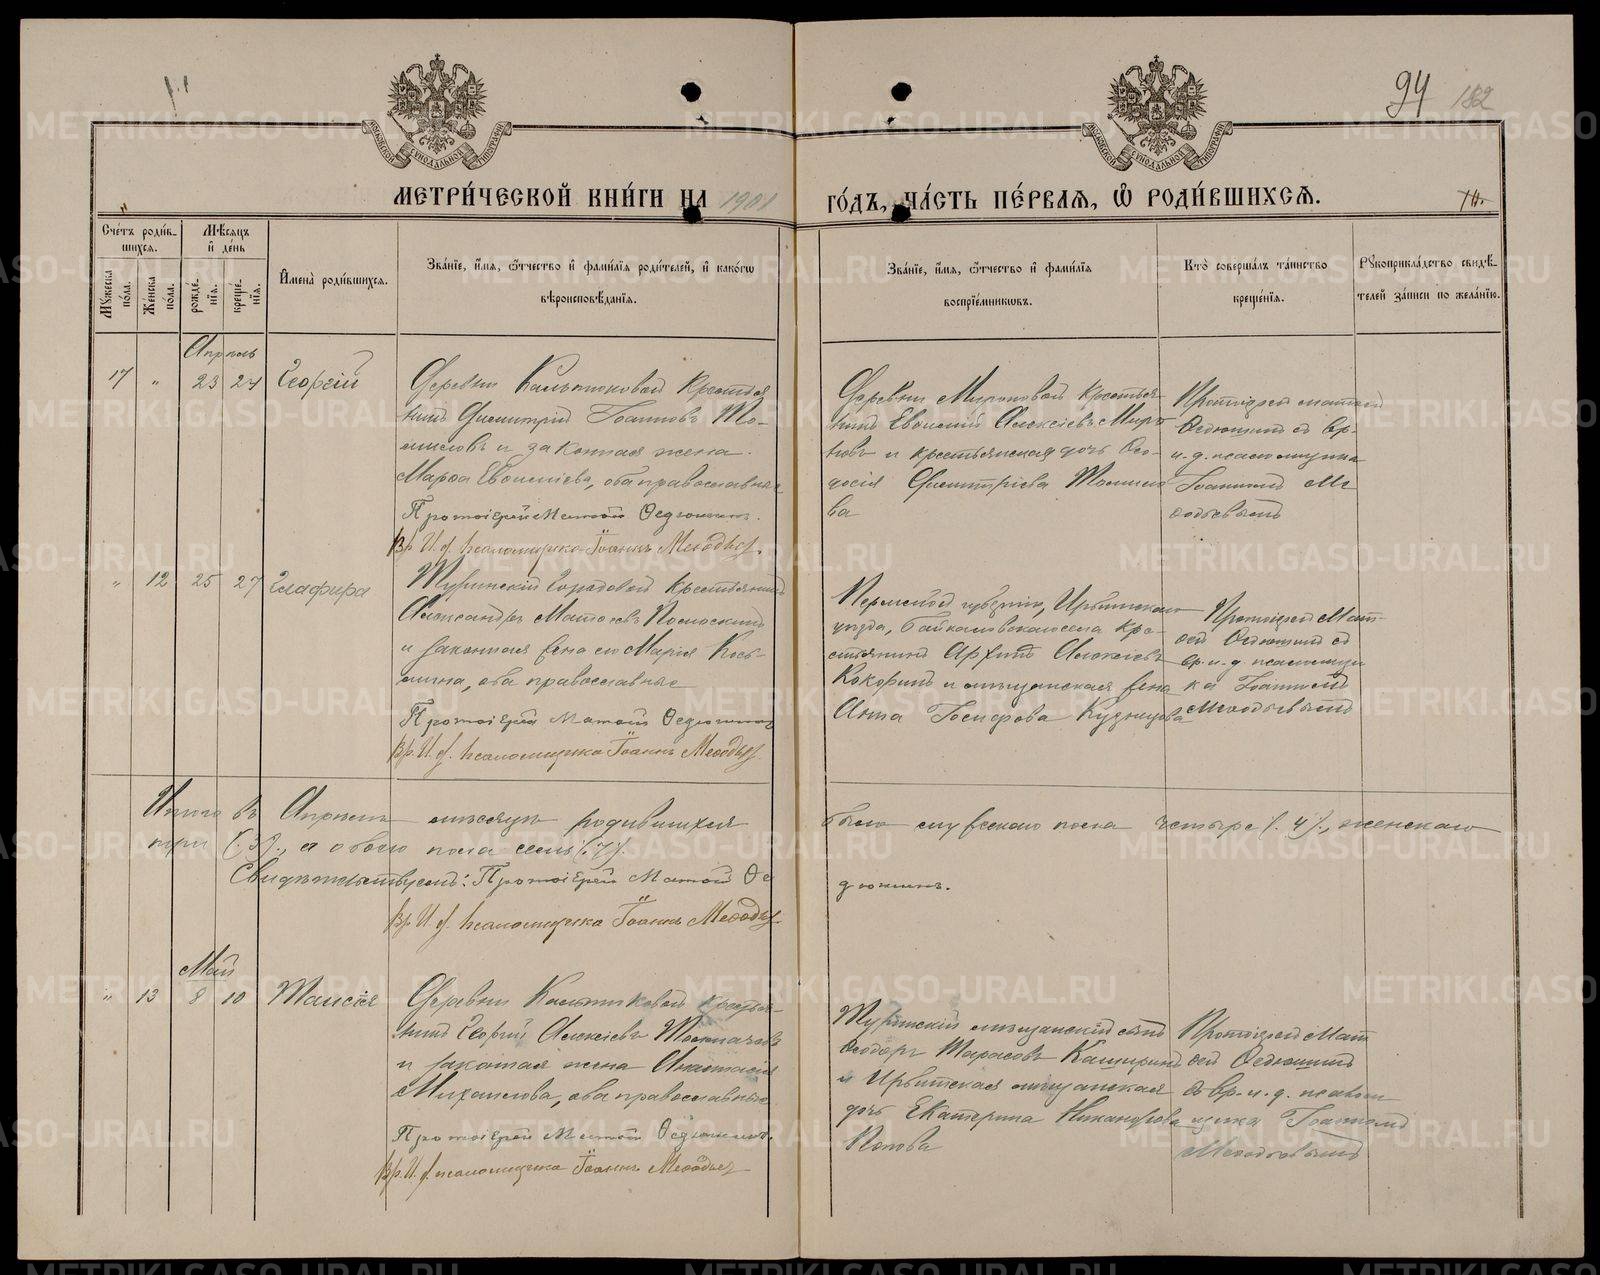 94 182
МЕТРИ́ЧЕСКОЙ КНИ́ГИ НА 1901 ГО́ДЪ, ЧА́СТЬ ПЕ́РВАЯ, Ѿ РОДИ́ВШИХСЯ.
Сче́тъ роди́в-
шихся.
Мѣ́сяцъ
и́ де́нь
Му́жеска
по́ла.
Же́нска
по́ла.
рожде́-
нія.
креще́-
нія.
И́мена̀ роди́вшихся.
Зва́нїе, и́мя, ѻ́тчество и́ фами́лїя роди́телей, и́ како́гѡ
вѣроисповѣ́данїя.
Зва́нїе, и́мя, ѻ́тчество и́ фами́лїя
воспрїе́мникѡвъ.
Кто̀ соверша́лъ та́инство
креще́нїя.
Рꙋкоприкла́дство свидѣ́-
телей за́писи по жела́нїю.
Апрѣль
17 " 23 24 Георгій
Деревни Калтюковой крестья
нинъ Димитрій Іоанновъ То-
миловъ и законная жена
Марѳа Евѳиміева, оба православные
Протоіерей Матѳій Ѳедюшинъ.
Вр. И. д. псаломщика Іоаннъ Меѳодьев.
Деревни Мироновой крестья-
нинъ Евѳимій Алексіевъ Миро
новъ и крестьянская дочь Ѳео-
досія Димитріева Томило
ва
Протоіерей Матѳій
Ѳедюшинъ съ вр.
и. д. псаломщика
Іоанномъ Ме
ѳодьевымъ
" 12 25 27 Глафира
Туринскій городовой крестьянинъ
Александръ Матѳіевъ
и законная жена его Марія Кось-
мина, оба православные
Протоіерей Матѳій Ѳедюшинъ
Вр. И. д. псаломщика Іоаннъ Меѳодьев.
Пермской губерніи, Ирбитскаго
уѣзда, Байкаловскаго села кре-
стьянинъ Алексіевъ
Кокоринъ и мѣщанская жена
Анна Кузнецова
Протоіерей Мат-
ѳій Ѳедюшинъ съ
вр. и. д. псаломщи
ка Іоанномъ
Меѳодьевымъ
Итого въ Апрѣлѣ мѣсяцѣ родившихся было мужескаго пола четыре (. 4.), женскаго
три (. 3.), а обоего пола семь (. 7.).
Свидѣтельствуемъ: Протоіерей Матѳій Ѳе дюшинъ.
Вр. И. д. псаломщика Іоаннъ Меѳодьев.
Май
" 13 8 10 Таисія
Деревни Калтюковой крестья-
нинъ Георгій Алексіевъ Толмачевъ
и законная жена Анастасія
Михаилова, оба православные
Протоіерей Матѳій Ѳедюшинъ.
Вр. И. д. псаломщика Іоаннъ Меѳодьев
Туринскій мѣщанскій сынъ
Ѳеодоръ Тарасовъ Каширинъ
и Ирбитская мѣщанская
дочь Екатерина Никандрова
Попова
Протоіерей Мат
ѳій Ѳедюшинъ
съ вр. и. д. псалом
щика Іоанномъ
Меѳодьевымъ
METRIKI.GASO-URAL.RU